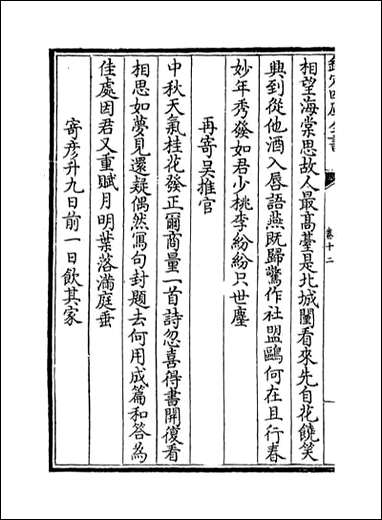 欽定四庫全書
卷十二
相望海棠思故人最高臺是北城闉看來先自花饒笑
興到從他酒入唇語燕既歸驚作社盟鷗何在且行春
妙年秀發如君少桃李紛紛只世塵
再寄吳推官
中秋天氣桂花發正爾商量一首詩忽喜得書開復看
相思如夢見還疑偶然寫句封題去何用成篇和答為
佳處因君又重賦月明葉落滿庭垂
寄彥升九日前一日飲其家